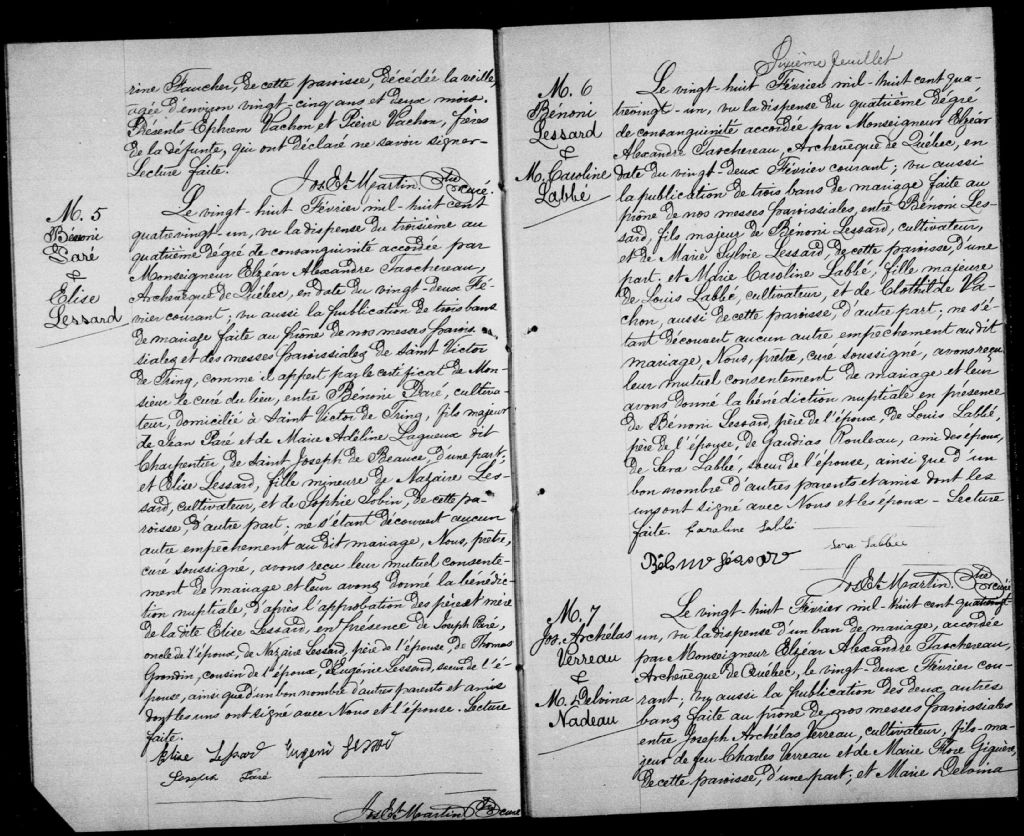 rine Faucher, de cette paroisse, décédée la veille,
agée d'environ vingt-cinq ans et deux mois.
Présents Ephrem Vachon et Pierre Vachon, frères
de la défunte, qui ont déclaré ne savoir signer.
Lecture faite.
Jos Et Martin Ptre curé.
M. 5
Bénoni
Paré
&
Elise
Lessard
Le vingt-huit Février mil-huit cent
quatrevingt-un, vu la dispense du troisième au
quatrième dégré de consanguinité accordée par
Monseigneur Elzéar Alexandre Taschereau,
Archevêque de Québec, en date du vingt-deux Fé-
vrier courant; vu aussi la publication de trois bans
de mariage faite au prône de nos messes parois-
siales et des messes paroissiales de Saint Victor
de Tring, comme il appert par le certificat de Mon-
sieur le curé du lieu, entre Bénoni Paré, cultiva-
teur, domicilié à Saint Victor de Tring, fils majeur
de Jean Paré et de Marie Adéline Lagueux dit
Charpentier, de Saint Joseph de Beauce, d'une part;
et Elise Lessard, fille mineure de Nazaire Les-
sard, cultivateur, et de Sophie Jobin, de cette pa-
roisse, d'autre part; ne s'étant découvert aucun
autre empêchement au dit mariage, Nous, prêtre,
curé soussigné, avons reçu leur mutuel consente-
ment de mariage et leur avons donné la bénédic-
tion nuptiale, d'après l'approbation des père et mère
de la dite Elise Lessard, en présence de Joseph Paré,
oncle de l'époux, de Nazaire Lessard, père de l'épouse, de Thomas
Grondin, cousin de l'époux, d'Eugénie Lessard, soeur de l'é-
pouse, ainsi que d'un bon nombre d'autres parents et amis
dont les uns ont signé avec Nous et l'épouse. Lecture
faite.
Elise Lessard Eugeni
Paré
Jos Et Martin Ptre curé
Sixième feuillet
M. 6
Bénoni
Lessard
&
M. Caroline
Labbé
Le vingt-huit Février mil-huit cent qua-
trevingt-un, vu la dispense du quatrième dégré
de consanguinité accordée par Monseigneur Elzéar
Alexandre Taschereau, Archevêque de Québec, en
date du vingt-deux Février courant; vu aussi
la publication de trois bans de mariage faite au
prône de nos messes paroissiales, entre Bénoni Les-
sard, fils majeur de Bénoni Lessard, cultivateur,
et de Marie Sylvie Lessard, de cette paroisse, d'une
part; et Marie Caroline Labbé, fille majeure
de Louis Labbé, cultivateur, et de Clothilde Va-
chon, aussi de cette paroisse, d'autre part; ne s'é-
tant découvert aucun autre empêchement au dit
mariage, Nous, prêtre, curé soussigné, avons reçu
leur mutuel consentement de mariage et leur
avons donné la bénédiction nuptiale en présence
de Bénoni Lessard, père de l'époux, de Louis Labbé,
père de l'épouse, de Gaudias Rouleau, ami des époux,
de Sara Labbé, soeur de l'épouse, ainsi que d'un
bon nombre d'autres parents et amis dont les
uns ont signé avec Nous et les époux - Lecture
faite. Caroline Labbé
Sera Labbee
Jos Et Martin Ptre curé
M. 7
Jos. Archélas
Verreau
&
M. Delvina
Nadeau
Le vingt huit Février mil-huit cent quatrevingt-
un, vu la dispense d'un ban de mariage, accordée
par Monseigneur Elzéar Alexandre Taschereau,
Archevêque de Québec, le vingt-deux Février cou-
rant; vu aussi la publication des deux autres
bans faite au prône de nos messes paroissiales
entre Joseph Archélas Verreau, cultivateur, fils ma-
jeur de feu Charles Verreau et de Marie Flore Giguère,
de cette paroisse, d'une part; et Marie Delvina